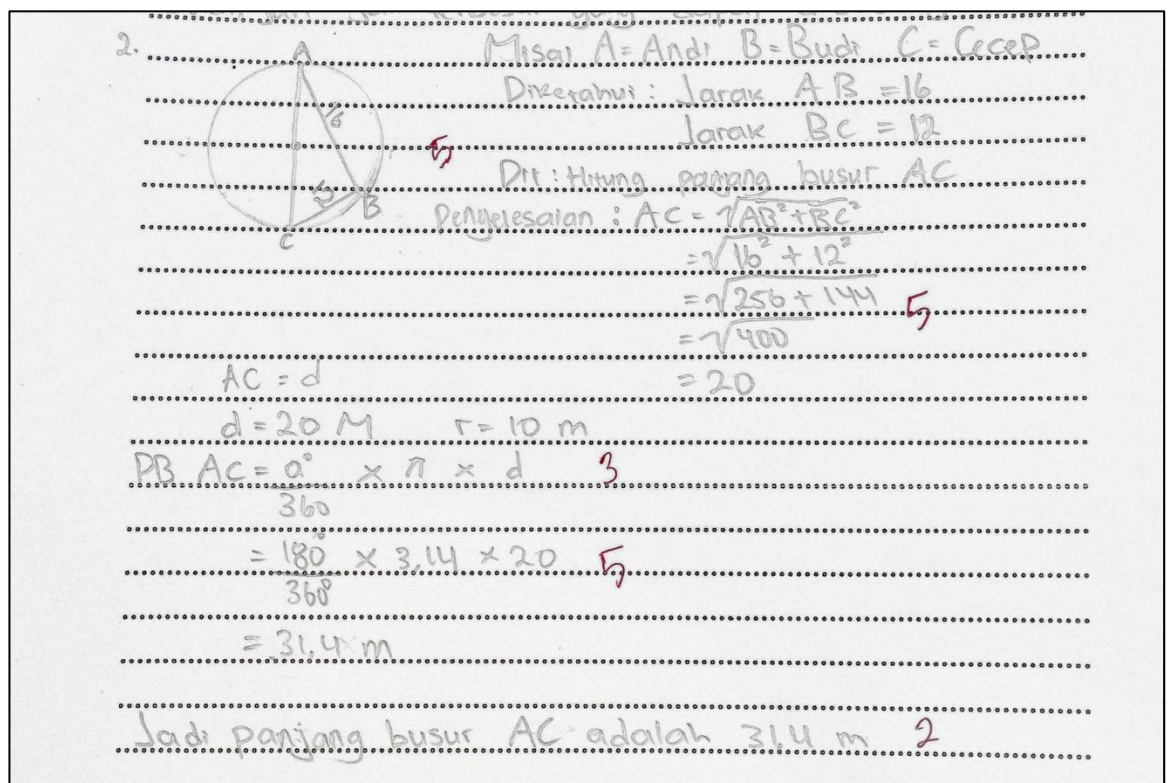 2.
Misal A = Andi B = Budi C = Cecep
A
16
12
B
C
Diketahui : Jarak AB = 16
Jarak BC = 12
5
Dit : Hitung panjang busur AC
Penyelesaian : AC = √AB² + BC²
= √16² + 12²
= √256 + 144 5
= √400
AC = d = 20
d = 20 M r = 10 m
PB AC = a°/360 × π × d 3
= 180°/360° × 3,14 × 20 5
= 31,4 m
Jadi panjang busur AC adalah 31,4 m 2